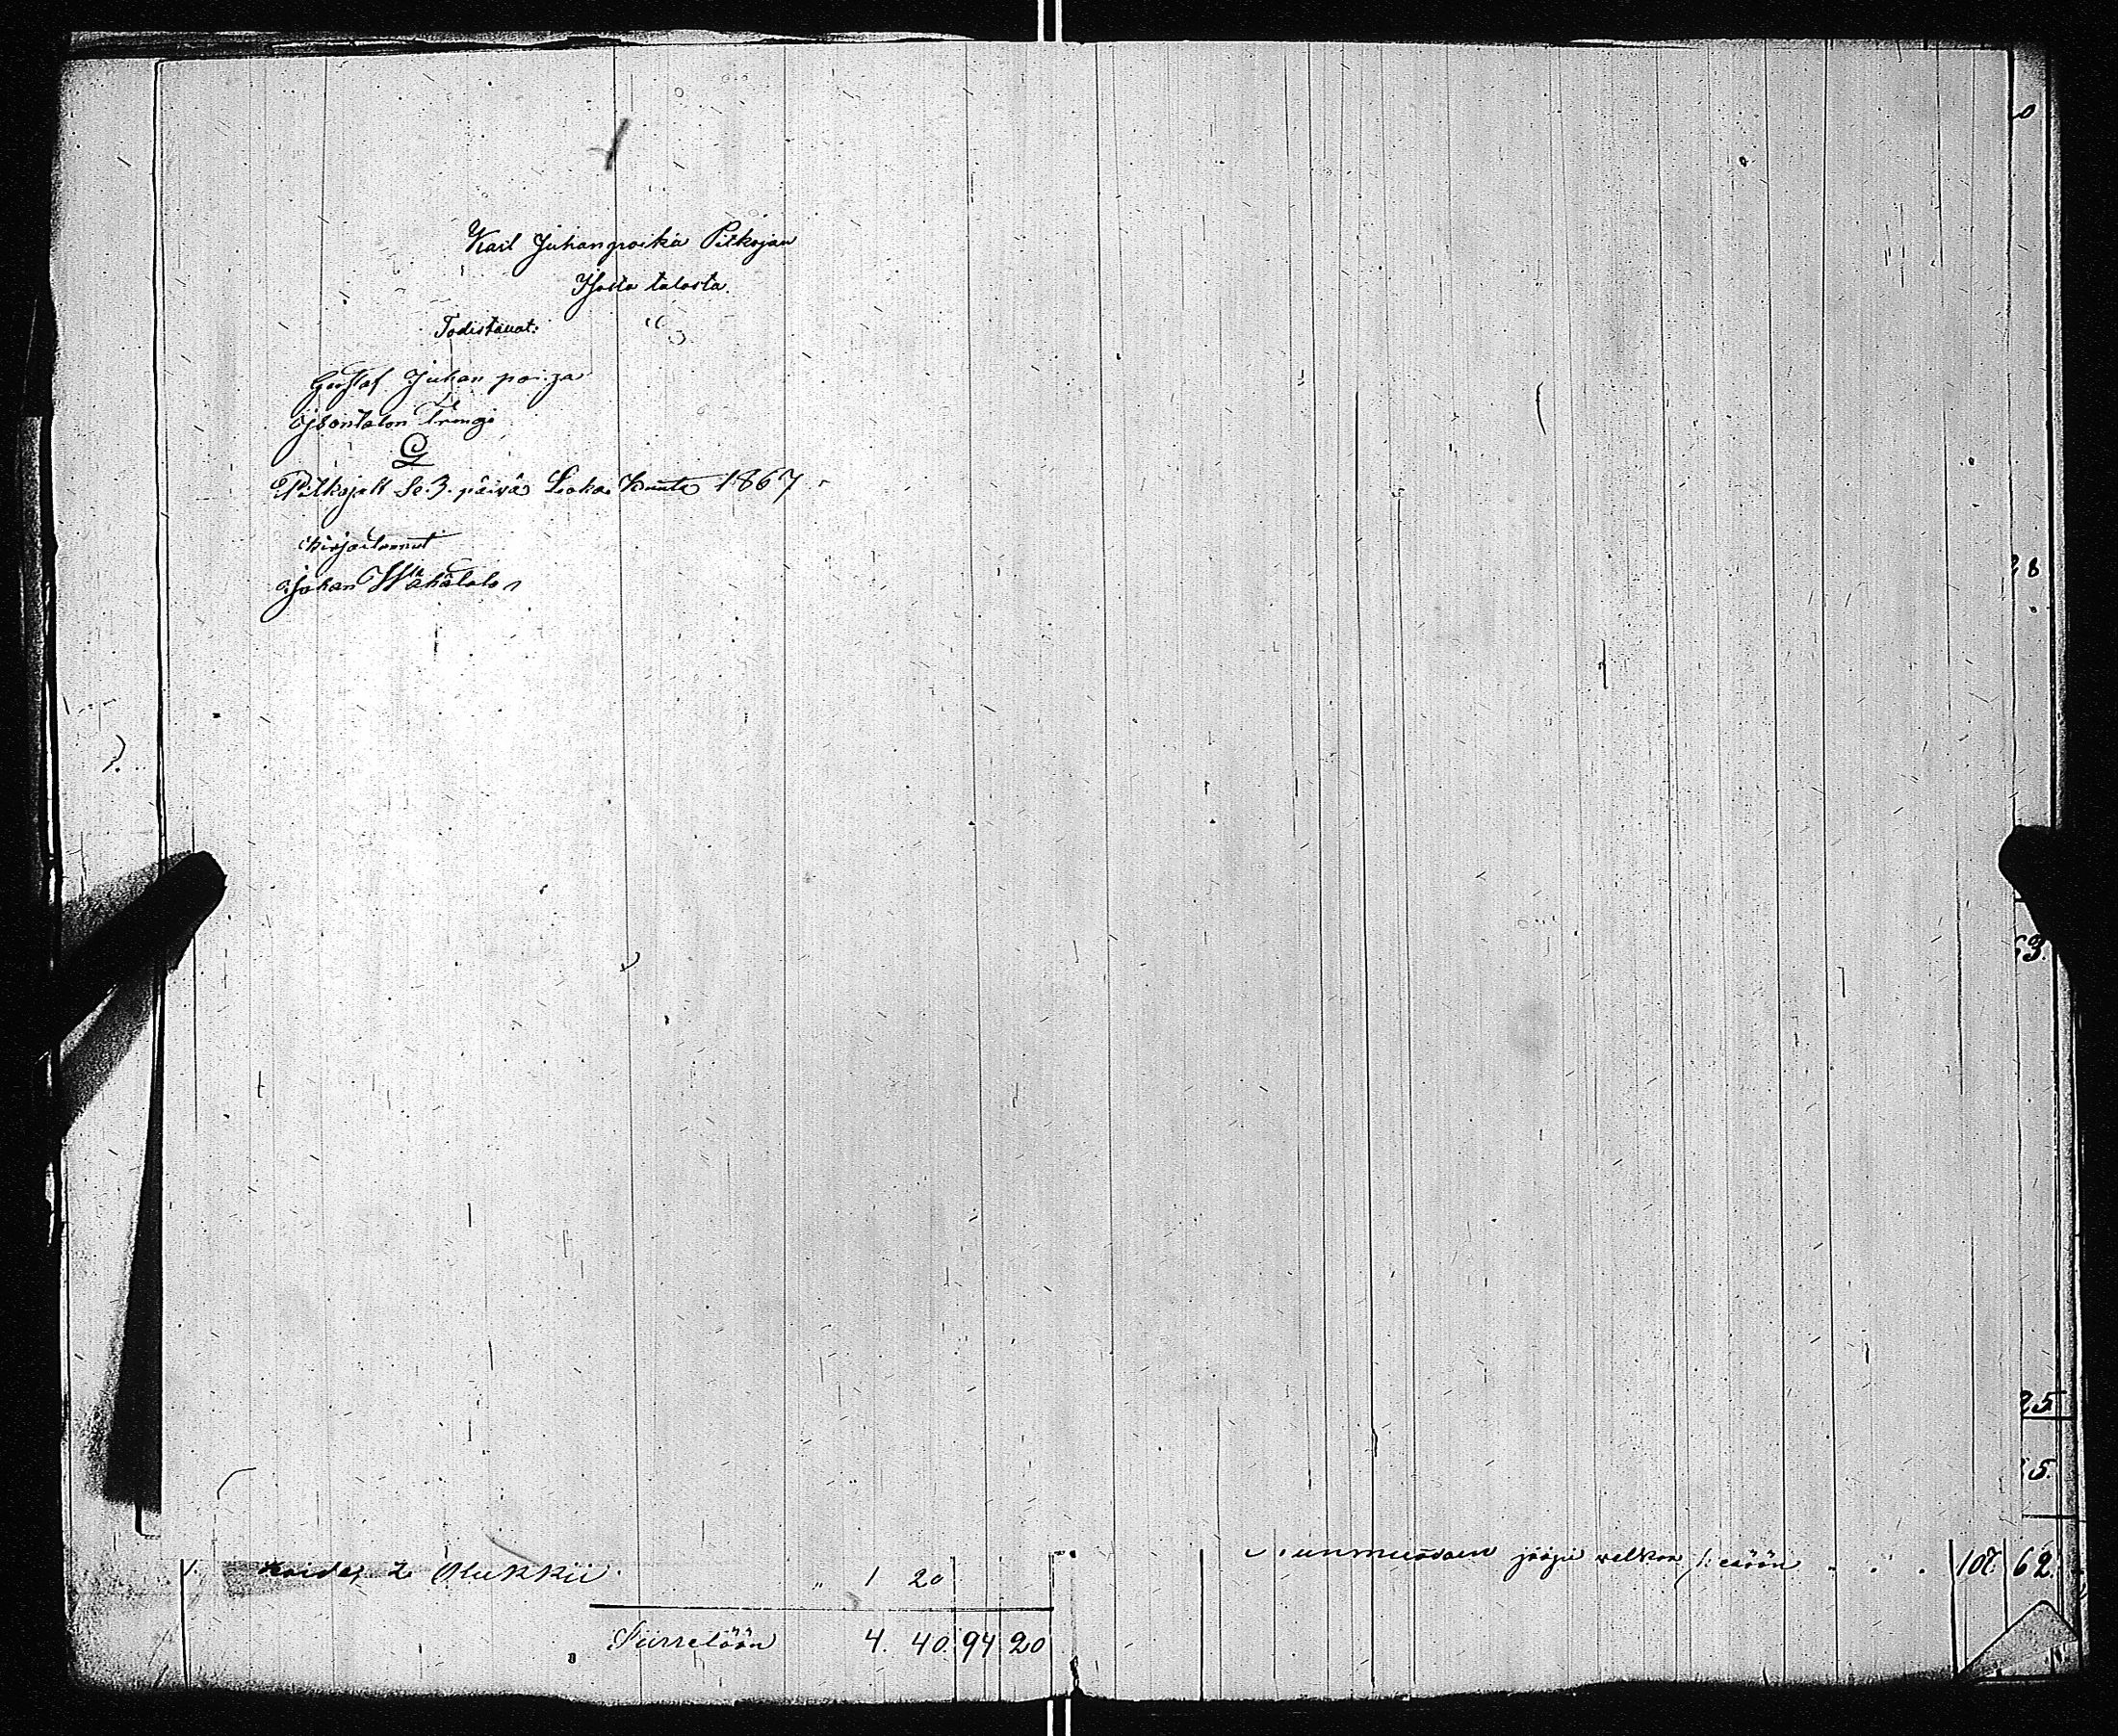 Karl Juhanpoika Pitkäjän
Isosta talosta.
Todistavat:
Gustaf Juhan poiga
Isontalon Trengi
G
Pitkäjält Se. 3. päivä Loka Kuuta 1867
kirjoitannut
Johan Wähätalo
28
63.
25
5.
1. 2 Olukkii " 1 20
Siirretöön 4. 40. 94 20
jääpi welkoa 107. 62.